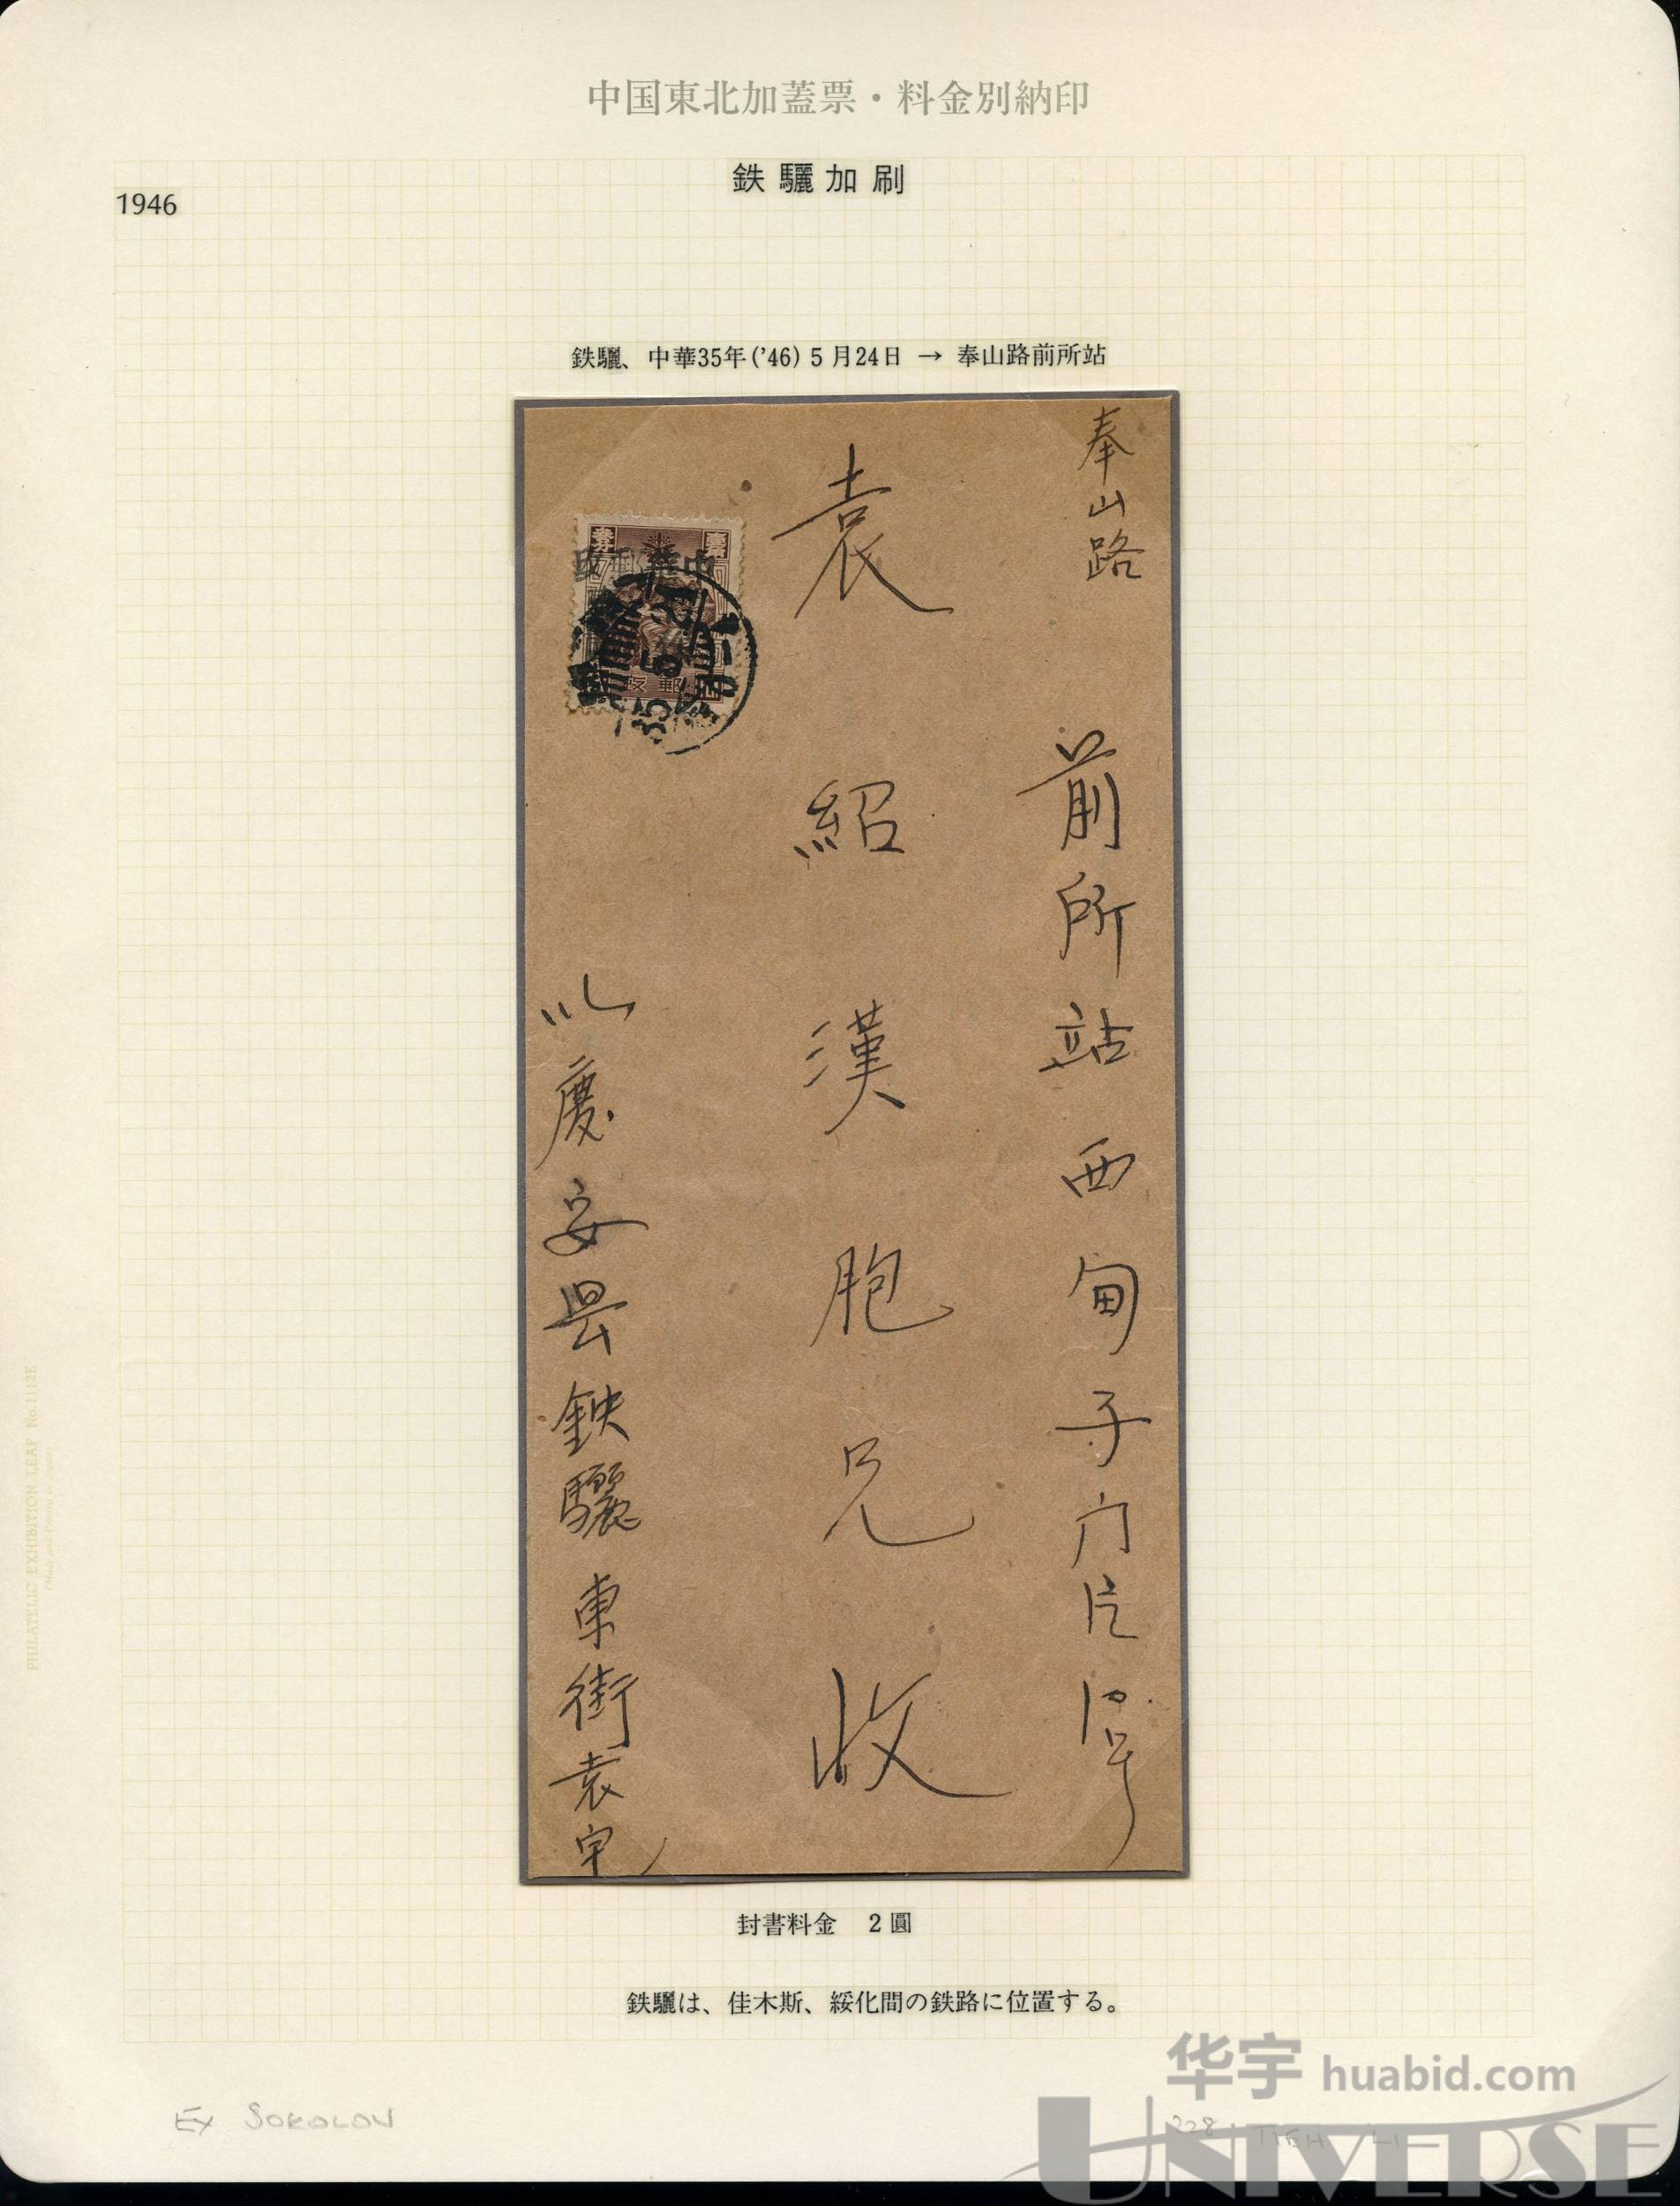 中国東北加蓋票・料金別納印
鉄驪加刷
1946
鉄驪、中華35年('46) 5月24日 → 奉山路前所站
奉山路
前所站西甸子门
袁紹漢胞兄收
慶安县鉄驪東街袁宅
35
封書料金 2圓
鉄驪は、佳木斯、綏化間の鉄路に位置する。
PHILATELIC EXHIBITION LEAF No.1112E
Ex SOKOLOV
228 TIEH LI
华宇 huabid.com
UNIVERSE